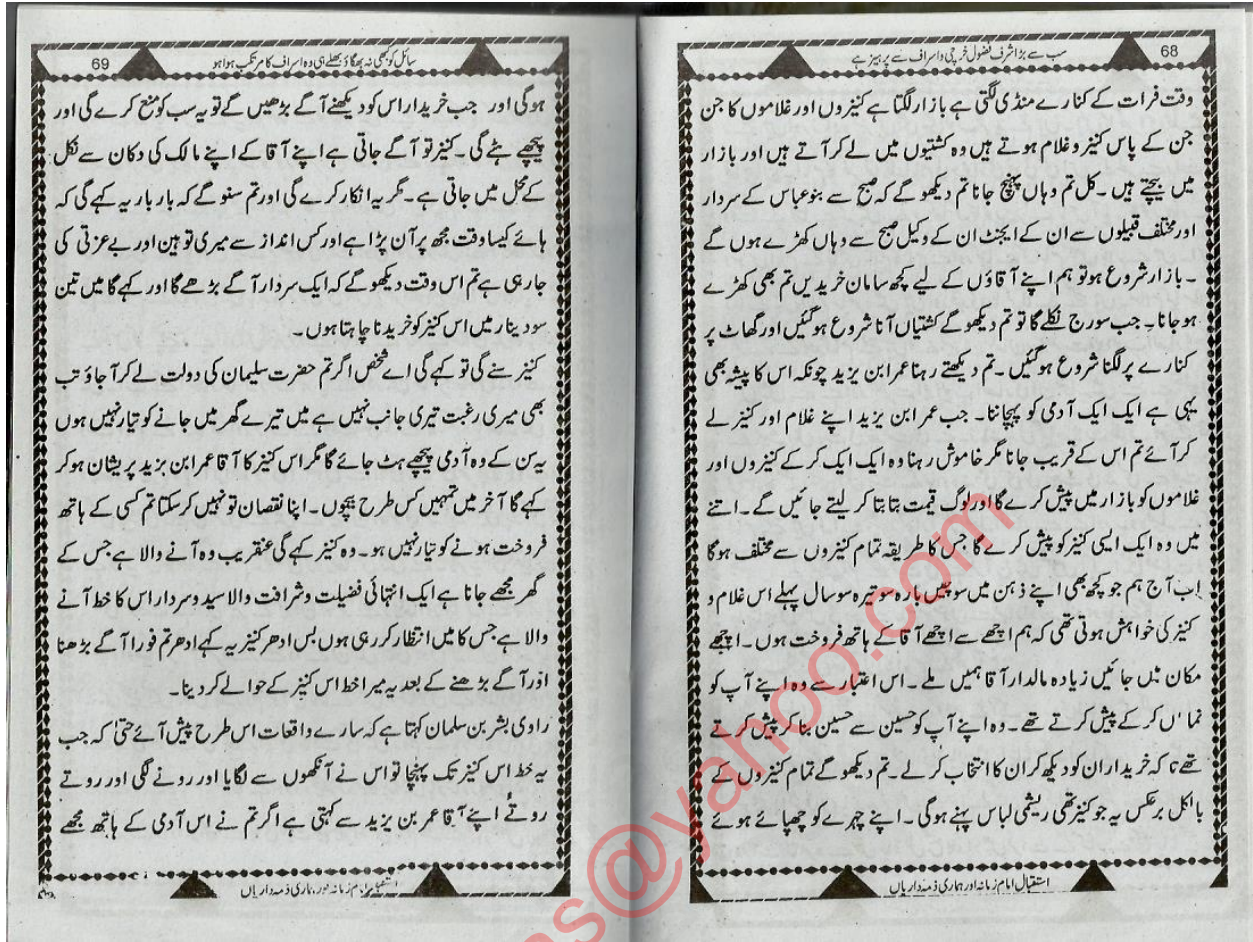 68
سب سے بڑا شرف فضول خرچی و اسراف سے پرہیز ہے
وقت فرات کے کنارے منڈی لگتی ہے بازار لگتا ہے کنیزوں اور غلاموں کا جن
جن کے پاس کنیز و غلام ہوتے ہیں وہ کشتیوں میں لے کر آتے ہیں اور بازار
میں بیچتے ہیں۔ کل تم وہاں پہنچ جانا تم دیکھو گے کہ صبح سے بنو عباس کے سردار
اور مختلف قبیلوں سے ان کے ایجنٹ ان کے وکیل صبح سے وہاں کھڑے ہوں گے
۔ بازار شروع ہو تو ہم اپنے آقاؤں کے لیے کچھ سامان خریدیں تم بھی کھڑے
ہو جانا۔ جب سورج نکلے گا تو تم دیکھو گے کشتیاں آنا شروع ہو گئیں اور گھاٹ پر
کنارے پر لگنا شروع ہو گئیں۔ تم دیکھتے رہنا عمر ابن یزید چونکہ اس کا پیشہ بھی
یہی ہے ایک ایک آدمی کو پہچاننا۔ جب عمر ابن یزید اپنے غلام اور کنیز لے
کر آئے تم اس کے قریب جانا مگر خاموش رہنا وہ ایک ایک کر کے کنیزوں اور
غلاموں کو بازار میں پیش کرے گا اور لوگ قیمت بتا بتا کر لیتے جائیں گے۔ اتنے
میں وہ ایک ایسی کنیز کو پیش کرے گا جس کا طریقہ تمام کنیزوں سے مختلف ہوگا
اب آج ہم جو کچھ بھی اپنے ذہن میں سوچیں بارہ سو تیرہ سو سال پہلے اس غلام و
کنیز کی خواہش ہوتی تھی کہ ہم اچھے سے اچھے آقا کے ہاتھ فروخت ہوں۔ اچھے
مکان میں جائیں زیادہ مالدار آقا ہمیں ملے۔ اس اعتبار سے وہ اپنے آپ کو
کر کے پیش کرتے تھے۔ وہ اپنے آپ کو حسین سے حسین بنا کر پیش کرتے
تھے تا کہ خریدار ان کو دیکھ کر ان کا انتخاب کر لے۔ تم دیکھو گے تمام کنیزوں کے
بالکل برعکس یہ جو کنیز تھی ریشمی لباس پہنے ہوگی۔ اپنے چہرے کو چھپائے ہوئے
استقبال امام زمانہ اور ہماری ذمہ داریاں
69
سائل کو کبھی نہ بھگاؤ بھلے ہی وہ اسراف کا مرتکب ہوا ہو
ہوگی اور جب خریدار اس کو دیکھنے آگے بڑھیں گے تو یہ سب کو منع کرے گی اور
پیچھے ہٹے گی۔ کنیز تو آگے جاتی ہے اپنے آقا کے اپنے مالک کی دکان سے نکل
کے محل میں جاتی ہے۔ مگر یہ انکار کرے گی اور تم سنو گے کہ بار بار یہ کہے گی کہ
ہائے کیسا وقت مجھ پر آن پڑا ہے اور کس انداز سے میری توہین اور بے عزتی کی
جا رہی ہے تم اس وقت دیکھو گے کہ ایک سردار آگے بڑھے گا اور کہے گا میں تین
سو دینار میں اس کنیز کو خریدنا چاہتا ہوں۔
کنیز سنے گی تو کہے گی اے شخص اگر تم حضرت سلیمان کی دولت لے کر آ جاؤ تب
بھی میری رغبت تیری جانب نہیں ہے میں تیرے گھر میں جانے کو تیار نہیں ہوں
یہ سن کے وہ آدمی پیچھے ہٹ جائے گا مگر اس کنیز کا آقا عمر ابن یزید پریشان ہو کر
کہے گا آخر میں تمہیں کس طرح بیچوں۔ اپنا نقصان تو نہیں کر سکتا تم کسی کے ہاتھ
فروخت ہونے کو تیار نہیں ہو۔ وہ کنیز کہے گی عنقریب وہ آنے والا ہے جس کے
گھر مجھے جانا ہے ایک انتہائی فضیلت و شرافت والا سید و سردار اس کا خط آنے
والا ہے جس کا میں انتظار کر رہی ہوں بس ادھر کنیز یہ کہے ادھر تم فوراً آگے بڑھنا
اور آگے بڑھنے کے بعد یہ میرا خط اس کنیز کے حوالے کر دینا۔
راوی بشر بن سلمان کہتا ہے کہ سارے واقعات اس طرح پیش آئے حتیٰ کہ جب
یہ خط اس کنیز تک پہنچا تو اس نے آنکھوں سے لگایا اور رونے لگی اور روتے
روتے اپنے آقا عمر بن یزید سے کہتی ہے اگر تم نے اس آدمی کے ہاتھ مجھے
استقبال امام زمانہ اور ہماری ذمہ داریاں
s@yahoo.com